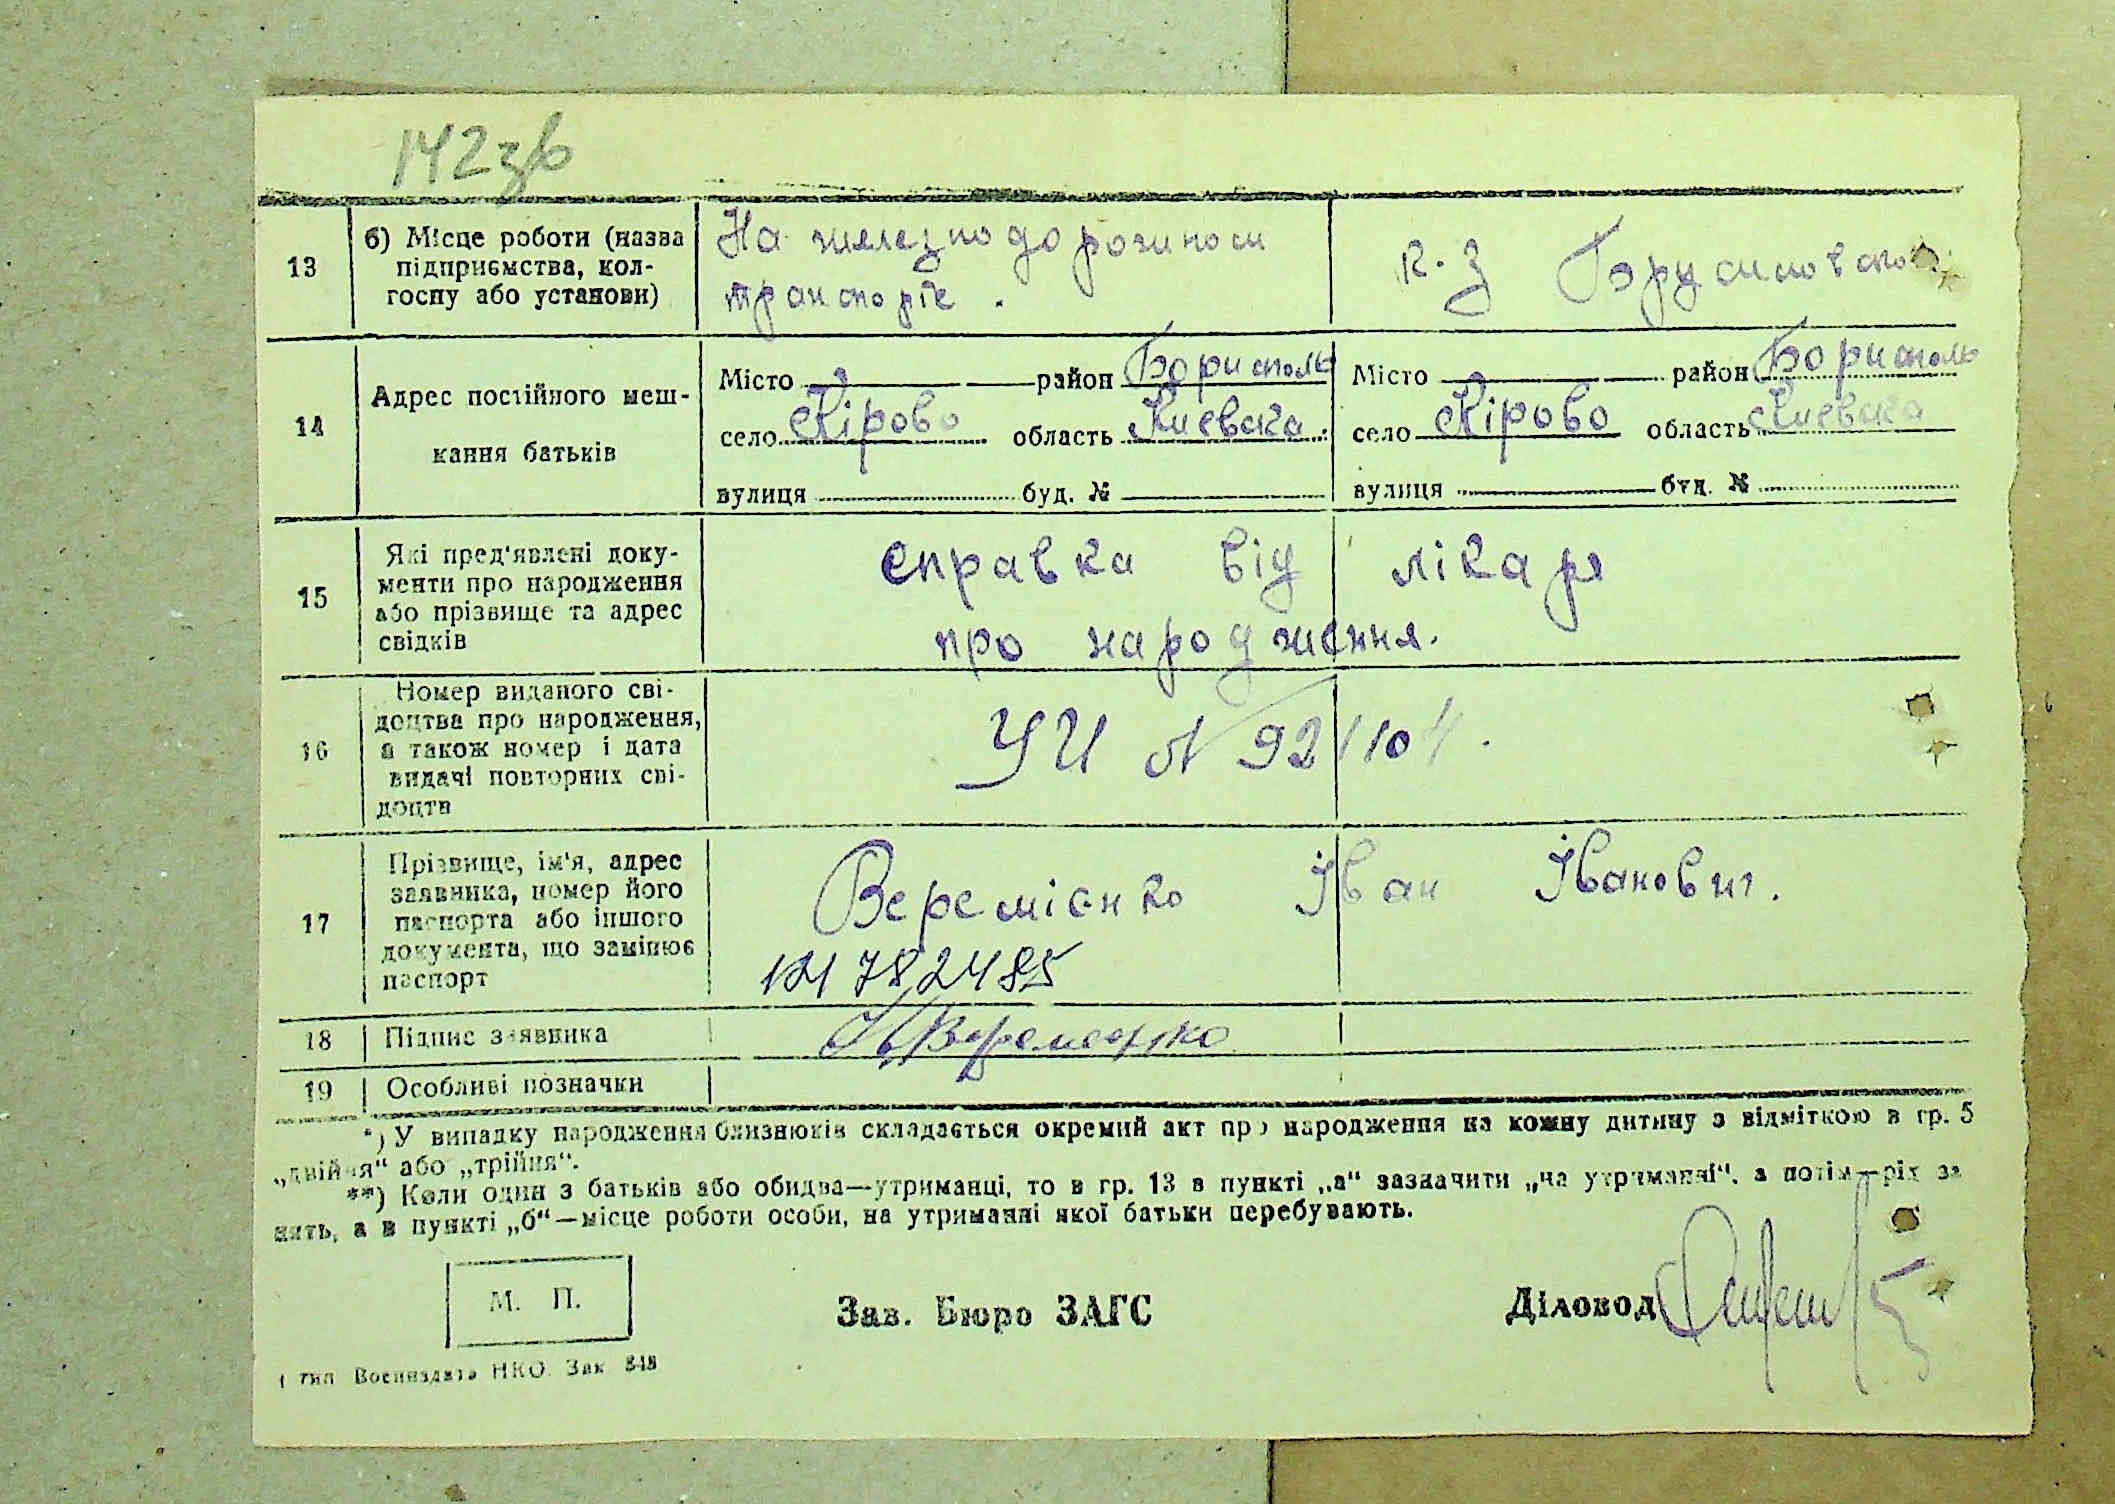 142зв
13
б) Місце роботи (назва
підприємства, кол-
госпу або установи)
На железнодорожном
транспорте.
к-з Брусиловского
14
Адрес постійного меш-
кання батьків
Місто район Бориспольс
село Кірово область Киевска
вулиця буд. №
Місто район Бориспол
село Кірово область Киевска
вулиця буд. №
15
Які пред'явлені доку-
менти про народження
або прізвище та адрес
свідків
справка від лікаря
про народження.
16
Номер виданого сві-
доцтва про народження,
а також номер і дата
видачі повторних сві-
доцтв
УИ № 92104.
17
Прізвище, ім'я, адрес
заявника, номер його
паспорта або іншого
документа, що замінює
паспорт
Веремієнко Іван Іванович.
782485
18
Підпис заявника
19
Особливі позначки
*) У випадку народження близнюків складається окремий акт про народження на кожну дитину з відміткою в гр. 5
„двійня“ або „трійня“.
**) Коли один з батьків або обидва—утриманці, то в гр. 13 в пункті „а“ зазначити „на утриманні“, а потім—рід за
нять, а в пункті „б“—місце роботи особи, на утриманні якої батьки перебувають.
М. П.
Зав. Бюро ЗАГС
Діловод
1 тип Воениздата НКО. Зак 848